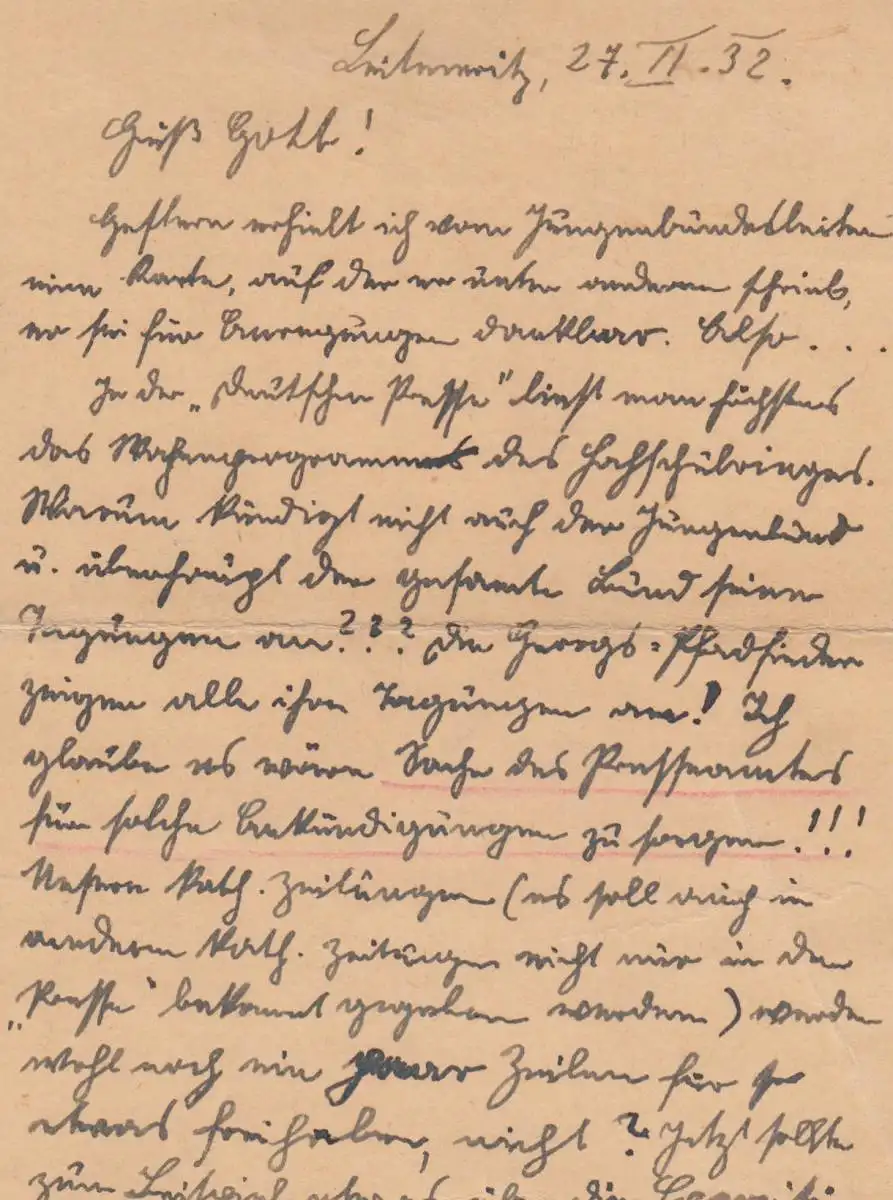 Leitmeritz, 27. II. 32.
Grüß Gott!
Gestern erhielt ich vom Jungenbundesleiter
eine Karte, auf der er unter anderem schrieb,
er sei für Anregungen dankbar. Also . . .
In der „Deutschen Presse" liest man höchstens
das Wochenprogramm des Hochschulringes.
Warum kündigt nicht auch der Jungenbund
u. überhaupt der gesamte Bund seine
Tagungen an??? Die Georgs=Pfadfinder
zeigen alle ihre Tagungen an! Ich
glaube es wäre Sache des Presseamtes
für solche Ankündigungen zu sorgen!!!
Unsere kath. Zeitungen (es soll auch in
anderen kath. Zeitungen nicht nur in der
„Presse" bekannt gegeben werden) werden
wohl noch ein paar Zeilen für so
etwas freihaben, nicht? Jetzt sollte
zum Beispiel etwas über die